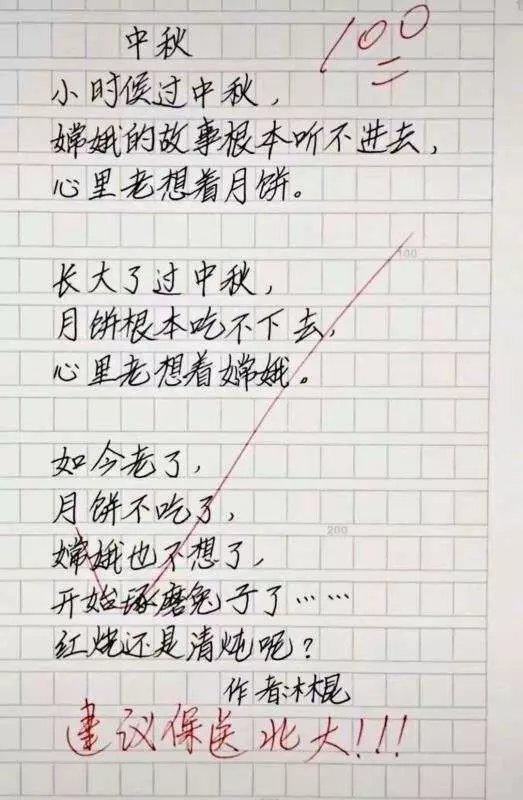 中秋
100
小时候过中秋，
嫦娥的故事根本听不进去，
心里老想着月饼。
100
长大了过中秋，
月饼根本吃不下去，
心里老想着嫦娥。
如今老了，
月饼不吃了，
200
嫦娥也不想了，
开始琢磨兔子了……
红烧还是清炖呢？
作者:木棍
建议保送北大!!!